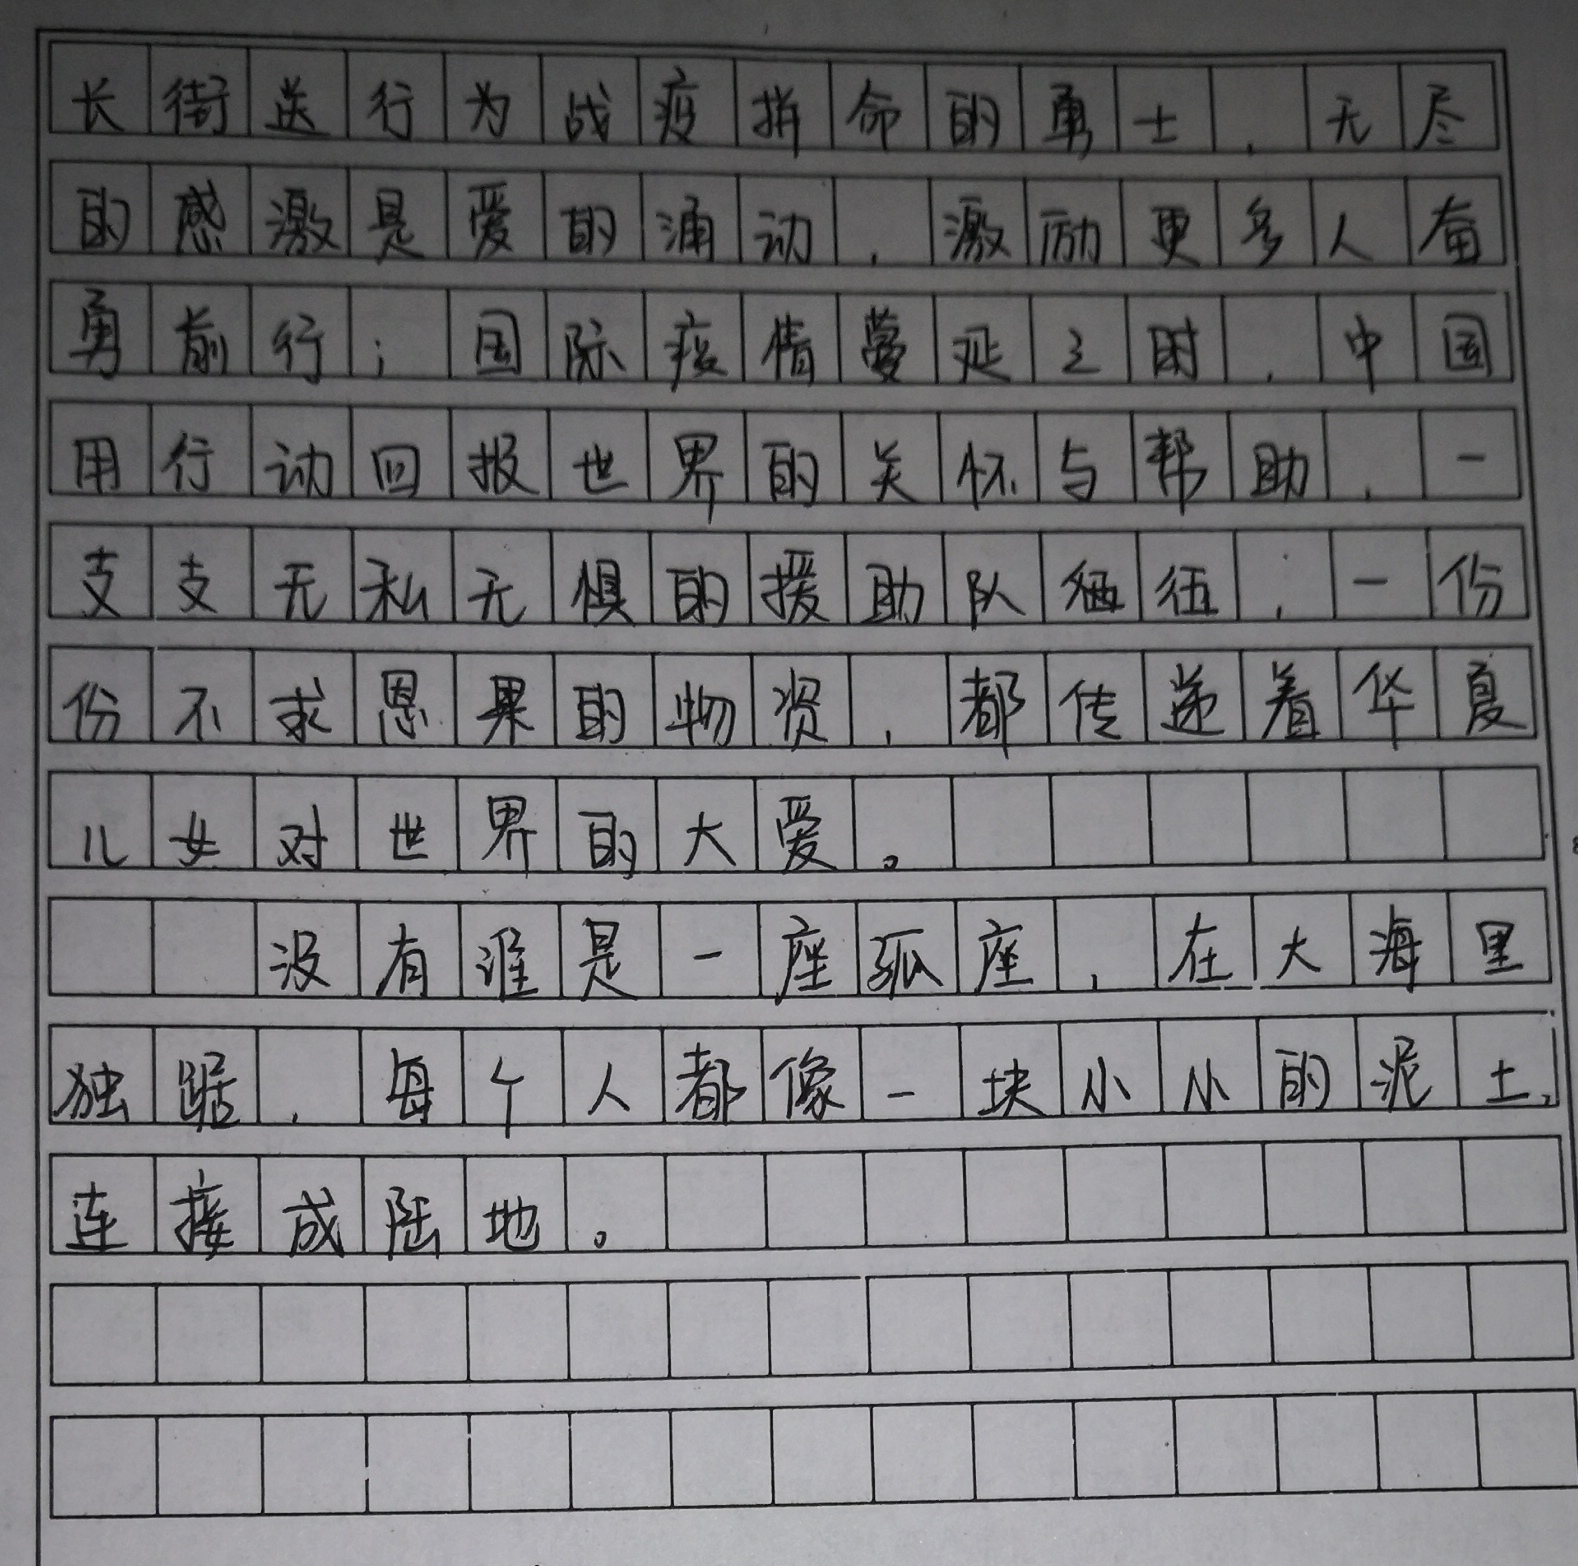 长街送行为战疫拼命的勇士，无尽
的感激是爱的涌动，激励更多人奋
勇前行；国际疫情蔓延之时，中国
用行动回报世界的关怀与帮助，一
支支无私无惧的援助队牺牲，一份
份不求恩果的物资，都传递着华夏
儿女对世界的大爱。
没有谁是一座孤座，在大海里
独踞，每个人都像一块小小的泥土，
连接成陆地。